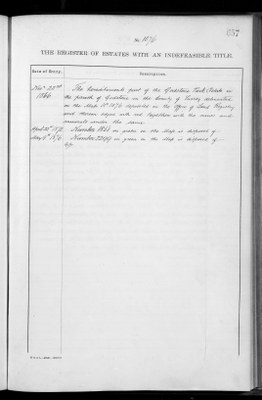 057
No. 1076
THE REGISTER OF ESTATES WITH AN INDEFEASIBLE TITLE.
Date of Entry. Description.
1866 The Hereditaments part of the Godstone Park Estate in
the parish of Godstone in the County of Surrey delineated
on the Map No. 1076 deposited in the Office of Land Registry
and thereon edged with red together with the mines and
minerals under the same.
April Number on green on the Map is disposed of
May Number on green on the Map is disposed of